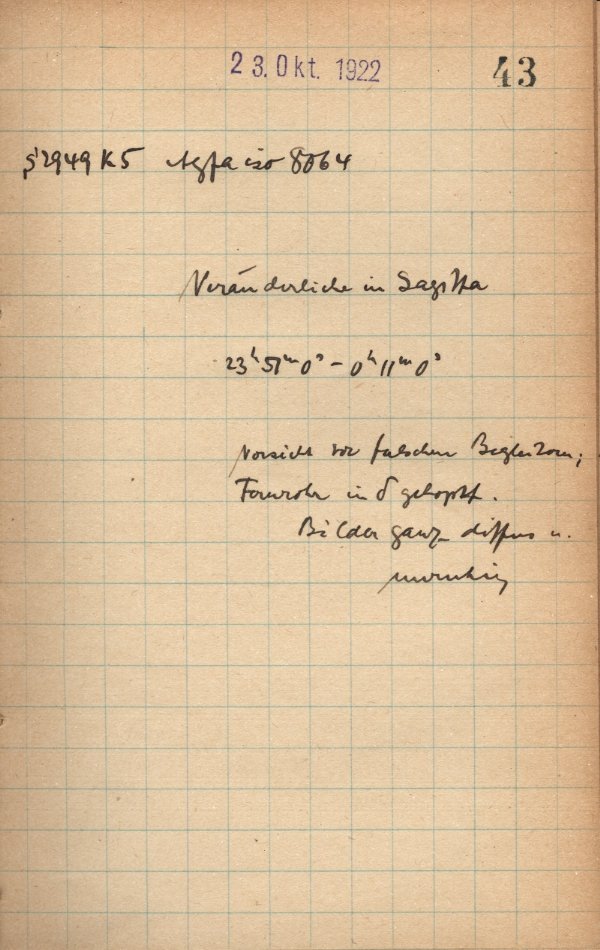 23. Okt. 1922
43
S 2949 K5 Agfa iso 8064
Veränderliche in Sagitta
23ʰ 51ᵐ 0ˢ – 0ʰ 11ᵐ 0ˢ
Vorsicht vor falschen Begleitern;
Fernrohr in δ gehopst.
Bilder ganz diffus u.
unruhig